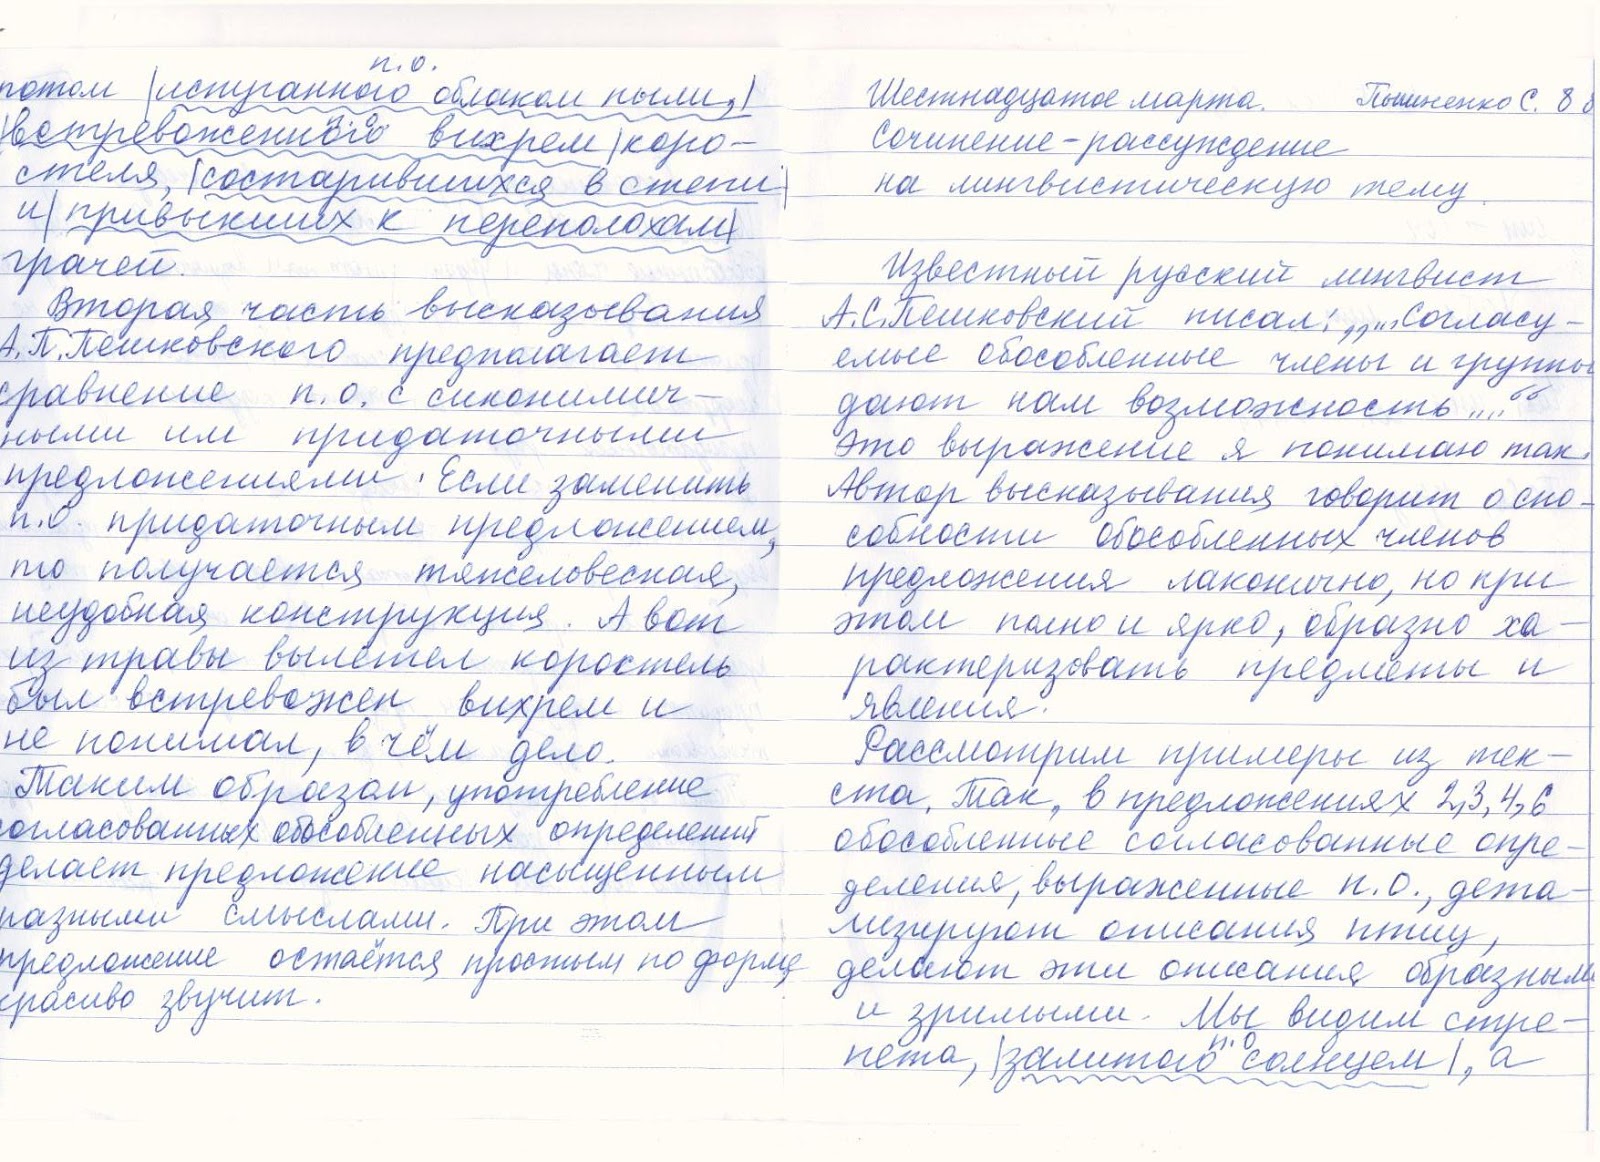 Шестнадцатое марта. С. 8
Сочинение-рассуждение
на лингвистическую тему.
Известный русский лингвист
А.С.Пешковский писал: „...Согласу-
емые обособленные члены и группы
дают нам возможность ...“
Это выражение я понимаю так.
Автор высказывания говорит о спо-
собности обособленных членов
предложения лаконично, но при
этом полно и ярко, образно ха-
рактеризовать предметы и
явления.
Рассмотрим примеры из тек-
ста. Так, в предложениях 2,3,4,6
обособленные согласованные опре-
деления, выраженные п.о., дета-
лизируют описания птиц,
делают эти описания образными
и зримыми. Мы видим стре-
п.о
пета, |залитого солнцем|, а
п.о.
потом |испуганного облаком пыли,|
|встревоженного вихрем| коро-
стеля, |состарившихся в степи|
и |привыкших к переполохам|
грачей.
Вторая часть высказывания
А.П.Пешковского предполагает
сравнение п.о. с синонимич-
ными им придаточными
предложениями. Если заменить
п.о. придаточным предложением,
то получается тяжеловесная,
неудобная конструкция. А вот
из травы вылетел коростель
был встревожен вихрем и
не понимал, в чём дело.
Таким образом, употребление
согласованных обособленных определений
делает предложение насыщенным
разными смыслами. При этом
предложение остаётся простым по форме
красиво звучит.